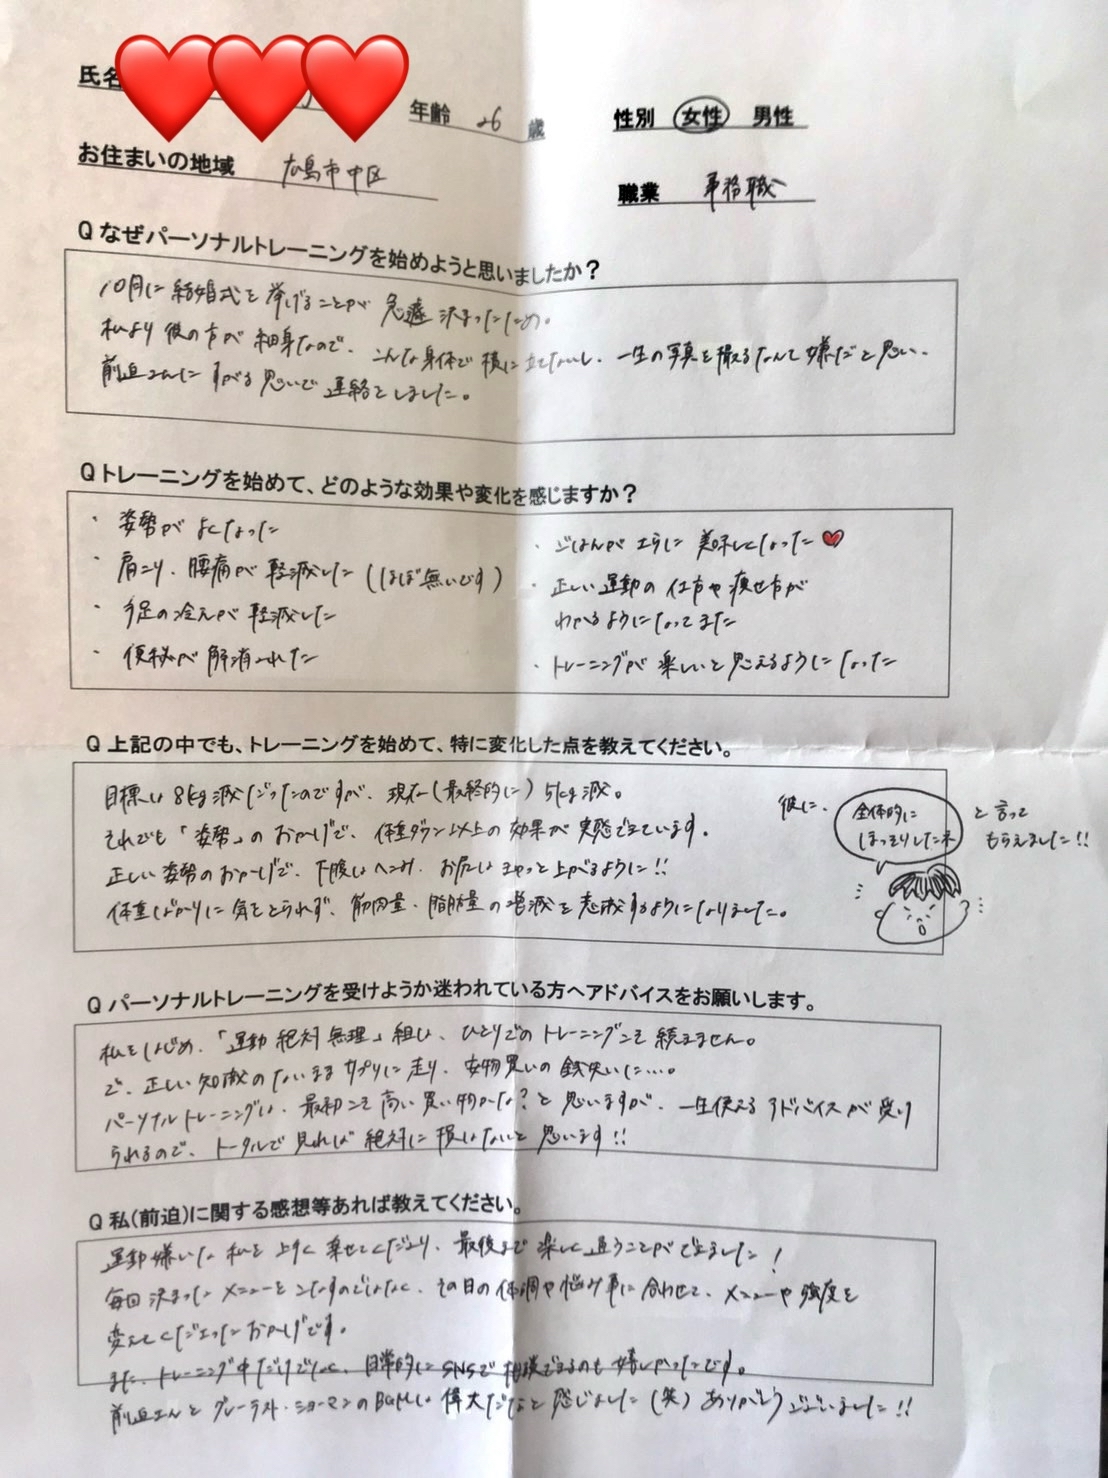 氏名
年齢 26 歳
性別 女性 男性
お住まいの地域 広島市中区
職業 事務職
Q なぜパーソナルトレーニングを始めようと思いましたか？
10月に結婚式を挙げることが 急遽 決まったため。
私より彼の方が細身なので、こんな身体で横に立てないし、一生の写真を撮るなんて嫌だと思い、
前迫さんに すがる思いで 連絡をしました。
Q トレーニングを始めて、どのような効果や変化を感じますか？
・ 姿勢が よくなった
・ 肩こり、腰痛が 軽減した（ほぼ無いです）
・ 手足の冷えが 軽減した
・ 便秘が 解消された
・ ごはんが さらに 美味しくなった♥
・ 正しい運動の仕方や痩せ方が
わかるようになってきた
・ トレーニングが 楽しいと思えるようになった
Q 上記の中でも、トレーニングを始めて、特に変化した点を教えてください。
目標は 8kg減だったのですが、現在（最終的に）5kg減。
それでも「姿勢」のおかげで、体重ダウン以上の効果が 実感できています。
正しい姿勢のおかげで、下腹はへこみ、お尻はきゅっと上がるように!!
体重ばかりに気をとられず、筋肉量・脂肪量の増減を意識するようになりました。
彼に、
全体的に
ほっそりしたネ
と言って
もらえました!!
Q パーソナルトレーニングを受けようか迷われている方へアドバイスをお願いします。
私をはじめ、「運動 絶対 無理」組は、ひとりでのトレーニングこそ 続きません。
で、正しい知識のないまま サプリに走り、安物買いの銭失いに…。
パーソナルトレーニングは、最初こそ 高い買い物かな？と思いますが、一生使えるアドバイスが 受け
られるので、トータルで見れば 絶対に 損はないと 思います!!
Q 私(前迫)に関する感想等あれば教えてください。
運動嫌いな 私を 上手く 乗せてくださり、最後まで 楽しく 通うことができました！
毎回 決まった メニューを こなすのではなく、その日の体調や悩み事に合わせて、メニューや強度を
変えてくださったおかげです。
また、トレーニング中だけでなく、日常的にSNSで相談できるのも 嬉しかったです。
前迫さんと グレーテスト・ショーマンのBGMは 偉大だなと 感じました（笑）ありがとうございました!!